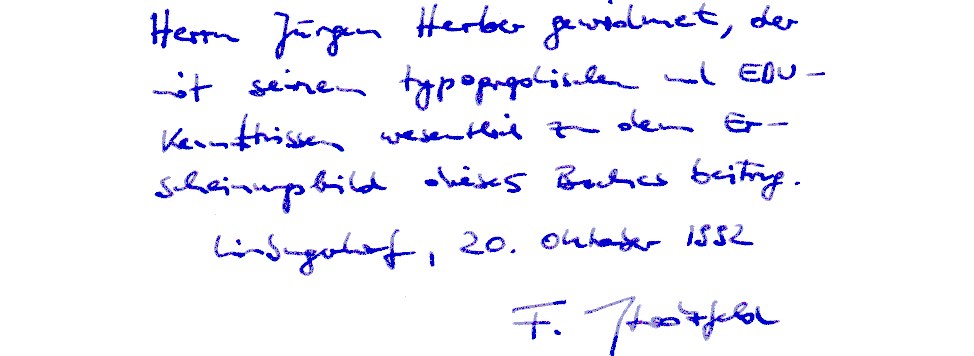 Herrn Jürgen Herber gewidmet, der
mit seinen typographischen und EDV-
Kenntnissen wesentlich zu dem Er-
scheinungsbild dieses Buches beitrug.
20. Oktober 1992
F.